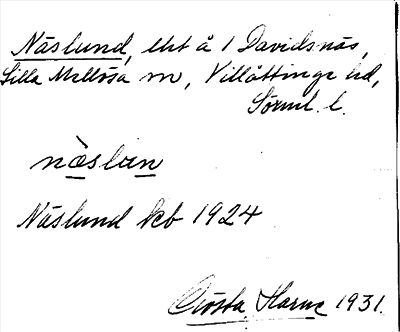 Näslund, lht å 1 Davidsnäs,
Lilla Mellösa sn, Villåttinge hd,
Sörml. l.
näslun
Näslund kb 1924
Gösta Harne 1931.